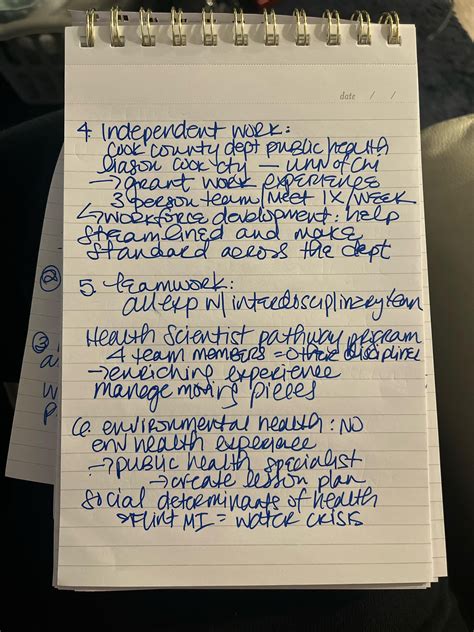 date / /
4. Independent work:
Cook county dept public health
liason cook cty — univ of chi
→ grant work experience
3 person team/meet 1X/week
↳ workforce development: help
streamlined and make
standard across the dept
5. teamwork:
all exp w/interdisciplinary team
Health Scientist pathway program
4 team members = other disciplines
→ enriching experience
manage moving pieces
6. environmental health: NO
env health experience
→ public health specialist
→ create lesson plan
social determinants of health
→ Flint MI = water crisis
2
3
a
w
p